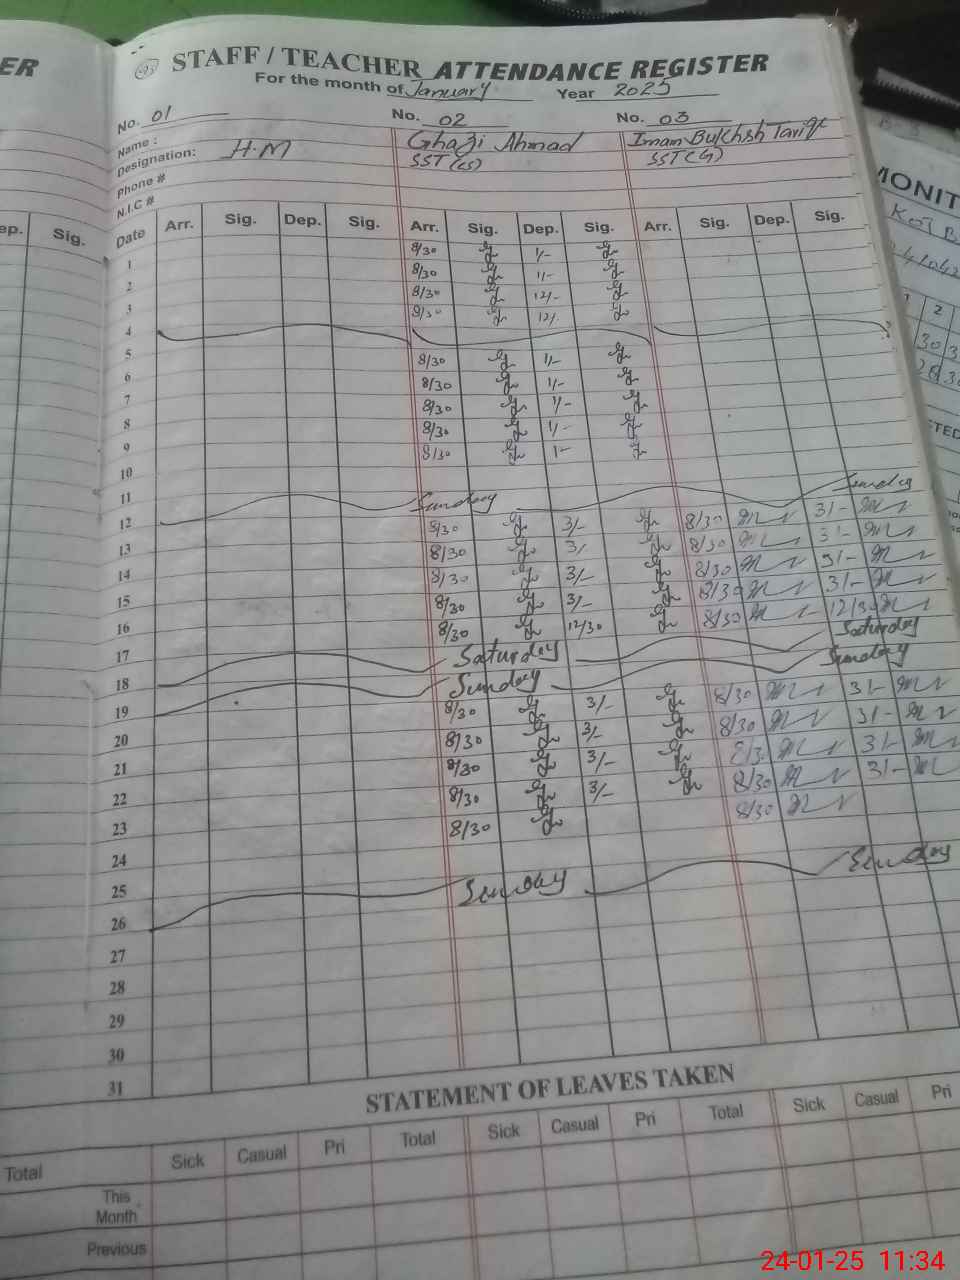 ER
STAFF / TEACHER ATTENDANCE REGISTER
For the month of January Year 2025
No. 01 No. 02 No. 03
Name : Ghazi Ahmad Imam Bukhsh Tariq
Designation: H.M SST (CS) SST (G)
Phone #
N.I.C #
ep. Sig. Date Arr. Sig. Dep. Sig. Arr. Sig. Dep. Sig. Arr. Sig. Dep. Sig.
1 8/30 1/-
2 8/30 1/-
3 8/30 12/-
4 8/30 12/-
5
6 8/30 1/-
7 8/30 1/-
8 8/30 1/-
9 8/30 1/-
10 8/30 1-
11
12 Sunday Sunday
13 8/30 3/- 8/30 3/-
14 8/30 3/ 8/30 3/-
15 8/30 3/- 8/30 3/-
16 8/30 3/- 8/30 3/-
17 8/30 12/30 8/30 12/30
18 Saturday Saturday
19 Sunday Sunday
20 8/30 3/- 8/30 3/-
21 8/30 3/- 8/30 3/-
22 8/30 3/- 8/3 3/-
23 8/30 3/- 8/30 3/-
24 8/30 8/30
25
26 Sunday Sunday
27
28
29
30
31
STATEMENT OF LEAVES TAKEN
Total Sick Casual Pri Total Sick Casual Pri Total Sick Casual Pri
This Month
Previous
MONIT
24-01-25 11:34